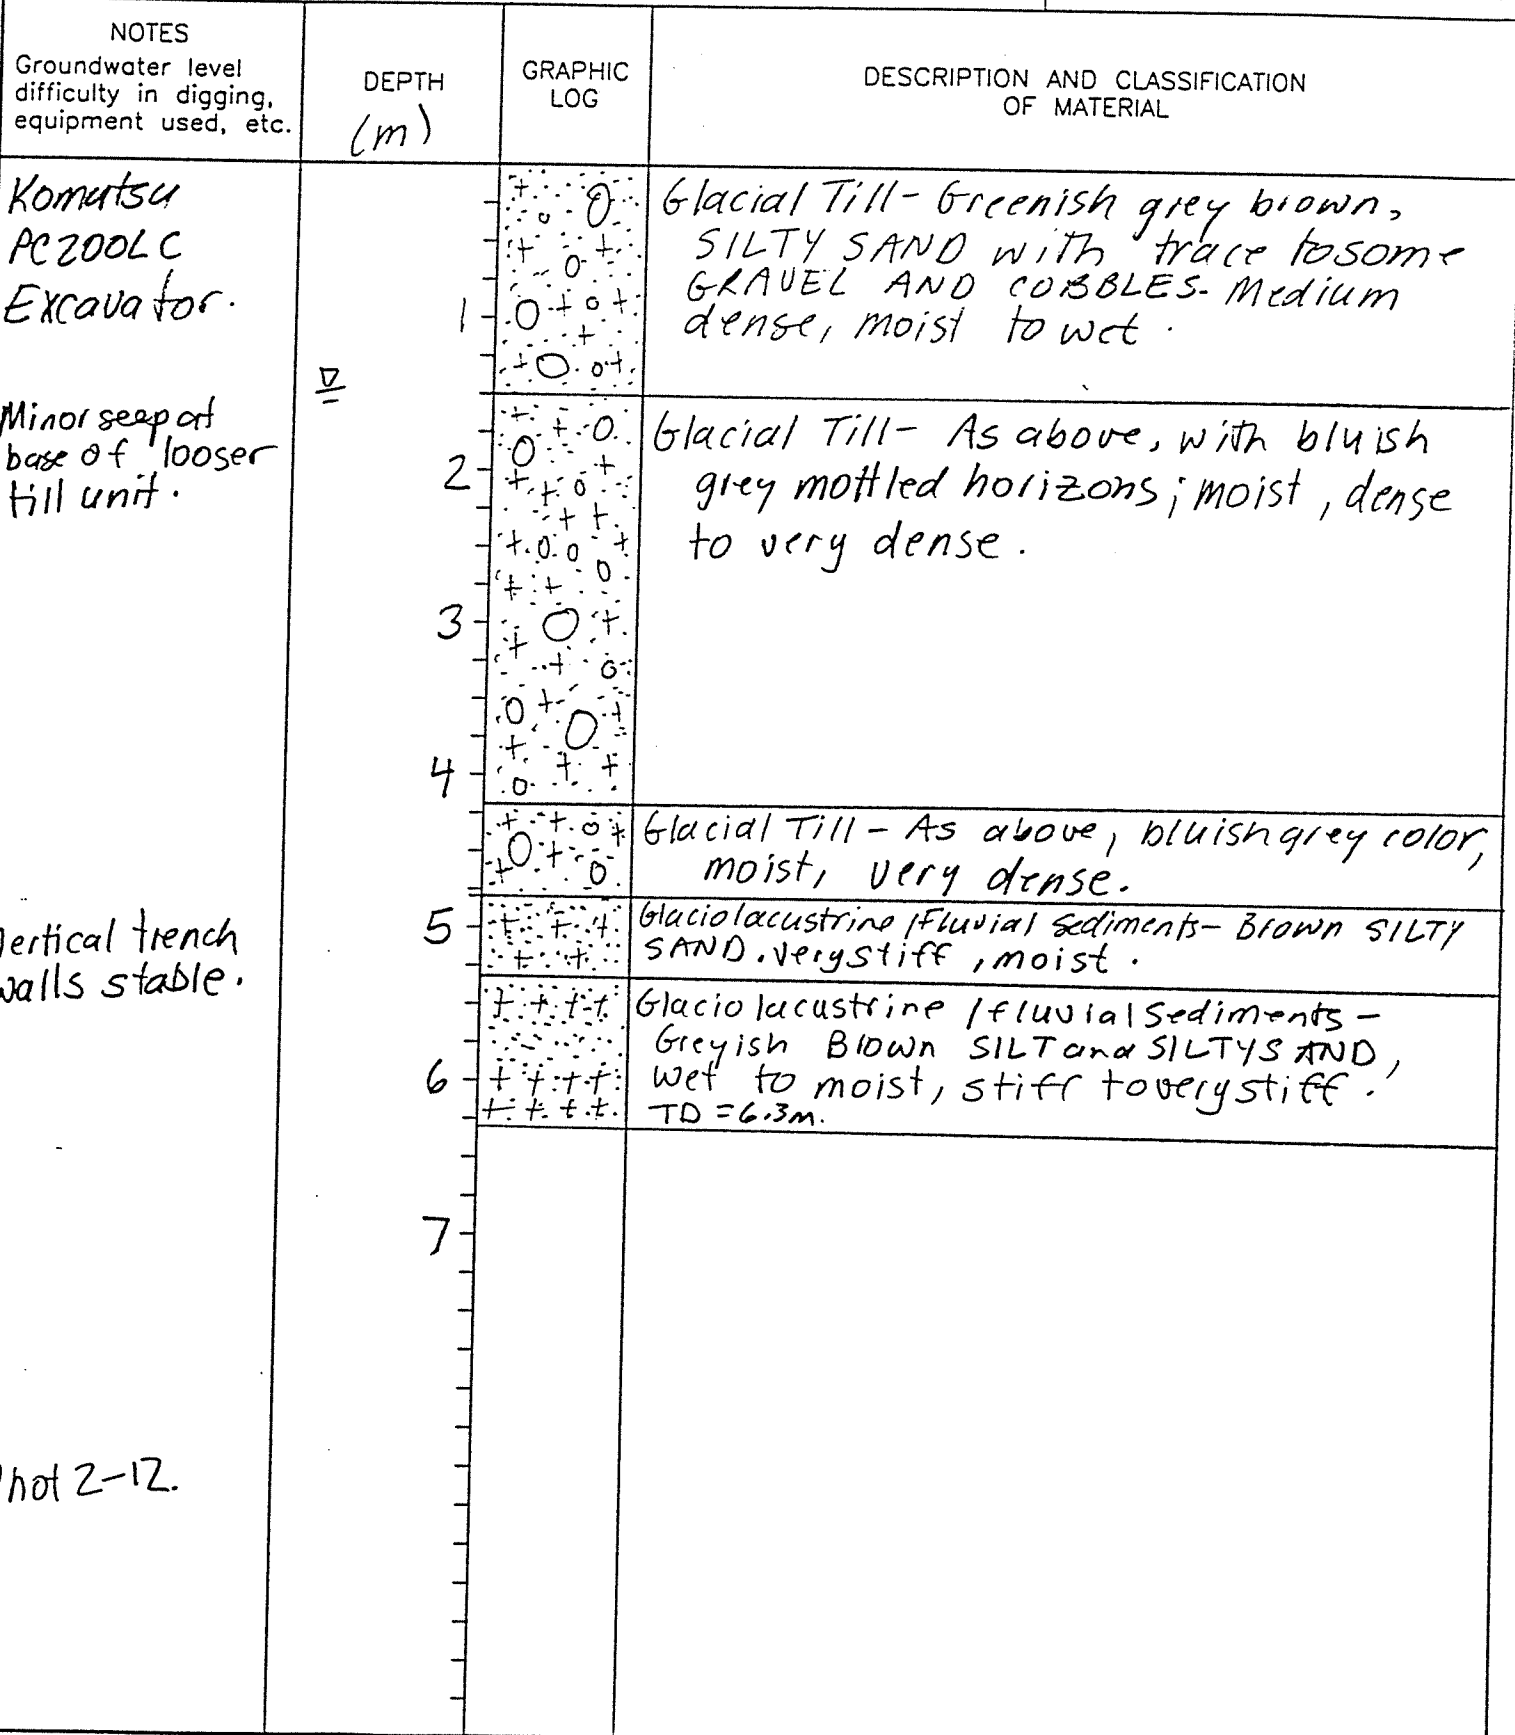 NOTES
Groundwater level
difficulty in digging,
equipment used, etc.
DEPTH
(m)
GRAPHIC
LOG
DESCRIPTION AND CLASSIFICATION
OF MATERIAL
Komatsu
PC200LC
Excavator.
Minor seep at
base of looser
till unit.
ertical trench
walls stable.
hot 2-12.
1
2
3
4
5
6
7
Glacial Till- Greenish grey brown,
SILTY SAND with trace to some
GRAVEL AND COBBLES. Medium
dense, moist to wet.
Glacial Till- As above, with bluish
grey mottled horizons; moist, dense
to very dense.
Glacial Till - As above, bluish grey color,
moist, very dense.
Glaciolacustrine/Fluvial Sediments- Brown SILTY
SAND. very stiff, moist.
Glaciolacustrine/fluvial Sediments-
Greyish Brown SILT and SILTY SAND,
wet to moist, stiff to very stiff.
TD = 6.3m.